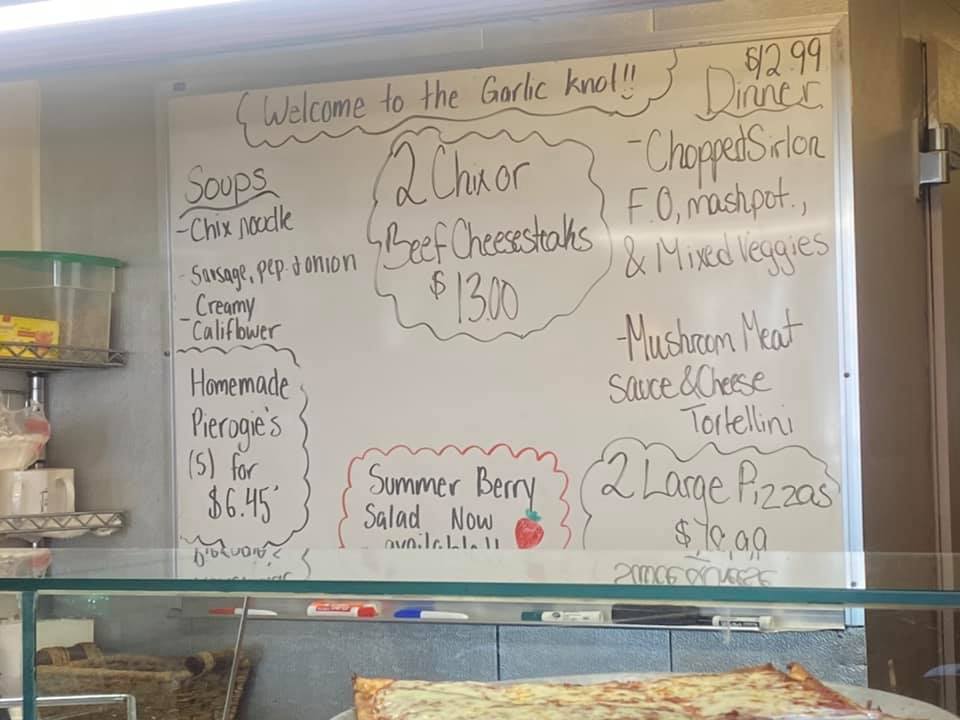 Welcome to the Garlic knot!!
$12.99
Dinner
- Chopped Sirlon
F.O, mashpot.,
& Mixed Veggies
- Mushroom Meat
Sauce & Cheese
Tortellini
Soups
- Chix noodle
- Sausage, pep. & onion
- Creamy
- Califlower
2 Chix or
Beef Cheesesteaks
$13.00
Homemade
Pierogie's
(5) for
$6.45
Summer Berry
Salad Now
available!!
2 Large Pizzas